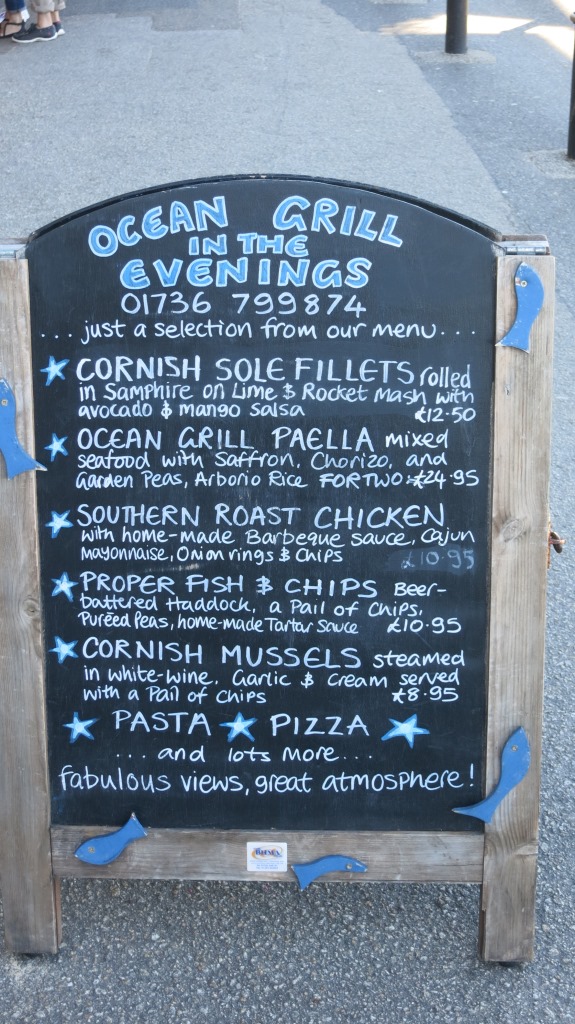 OCEAN GRILL
IN THE
EVENINGS
01736 799874
... just a selection from our menu...
CORNISH SOLE FILLETS rolled
in Samphire on Lime & Rocket Mash with
avocado & mango salsa £12.50
OCEAN GRILL PAELLA mixed
seafood with Saffron, Chorizo, and
Garden Peas, Arborio Rice FOR TWO: £24.95
SOUTHERN ROAST CHICKEN
with home-made Barbeque sauce, Cajun
mayonnaise, Onion rings & Chips £10.95
PROPER FISH & CHIPS Beer-
battered Haddock, a Pail of Chips,
Puréed Peas, home-made Tartar Sauce £10.95
CORNISH MUSSELS steamed
in white-wine, Garlic & Cream served
with a Pail of Chips £8.95
PASTA PIZZA
... and lots more...
fabulous views, great atmosphere!